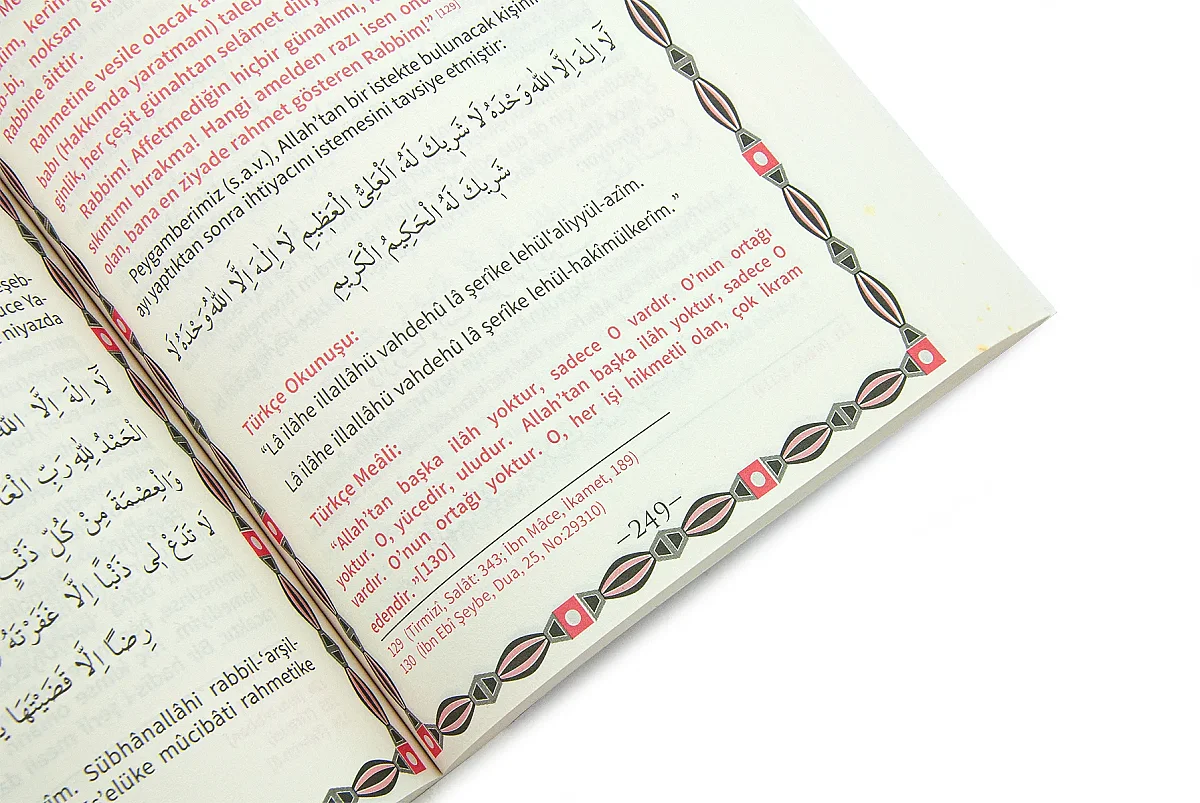 şeb-
uce Ya-
niyazda
لَا اِلٰهَ اِلَّا اللّٰهُ
اَلْحَمْدُ لِلّٰهِ رَبِّ
وَالْعِصْمَةَ مِنْ كُلِّ ذَنْبٍ
لَا تَدَعْ لِى ذَنْبًا اِلَّا غَفَرْتَهُ
رِضًا اِلَّا قَضَيْتَهَا
Sübhânallâhi rabbil-‘arşil-
s’elüke mûcibâti rahmetike
noksan
Rabbine âittir.
Rahmetine vesile olacak
babı (Hakkımda yaratmanı) taleb
ginlik, her çeşit günahtan selâmet
Rabbim! Affetmediğin hiçbir günahımı,
sıkıntımı bırakma! Hangi amelden razı isen
olan, bana en ziyade rahmet gösteren Rabbim!” [129]
Peygamberimiz (s.a.v.), Allah’tan bir istekte bulunacak kişinin
ayı yaptıktan sonra ihtiyacını istemesini tavsiye etmiştir:
لَا اِلٰهَ اِلَّا اللّٰهُ وَحْدَهُ لَا شَرِيكَ لَهُ، اَلْعَلِىُّ الْعَظِيمِ لَا اِلٰهَ اِلَّا اللّٰهُ وَحْدَهُ لَا
شَرِيكَ لَهُ الْحَكِيمُ الْكَرِيمِ
Türkçe Okunuşu:
“Lâ ilâhe illallâhü vahdehû lâ şerîke lehül‘aliyyül-azîm.
Lâ ilâhe illallâhü vahdehû lâ şerîke lehül-hakîmülkerîm.”
Türkçe Meâli:
“Allah’tan başka ilâh yoktur, sadece O vardır. O’nun ortağı
yoktur. O, yücedir, uludur. Allah’tan başka ilâh yoktur, sadece O
vardır. O’nun ortağı yoktur. O, her işi hikmetli olan, çok İkram
edendir. ”[130]
129 (Tirmizî, Salât: 343; İbn Mâce, İkamet, 189)
130 (İbn Ebî Şeybe, Dua, 25, No:29310)
-249-